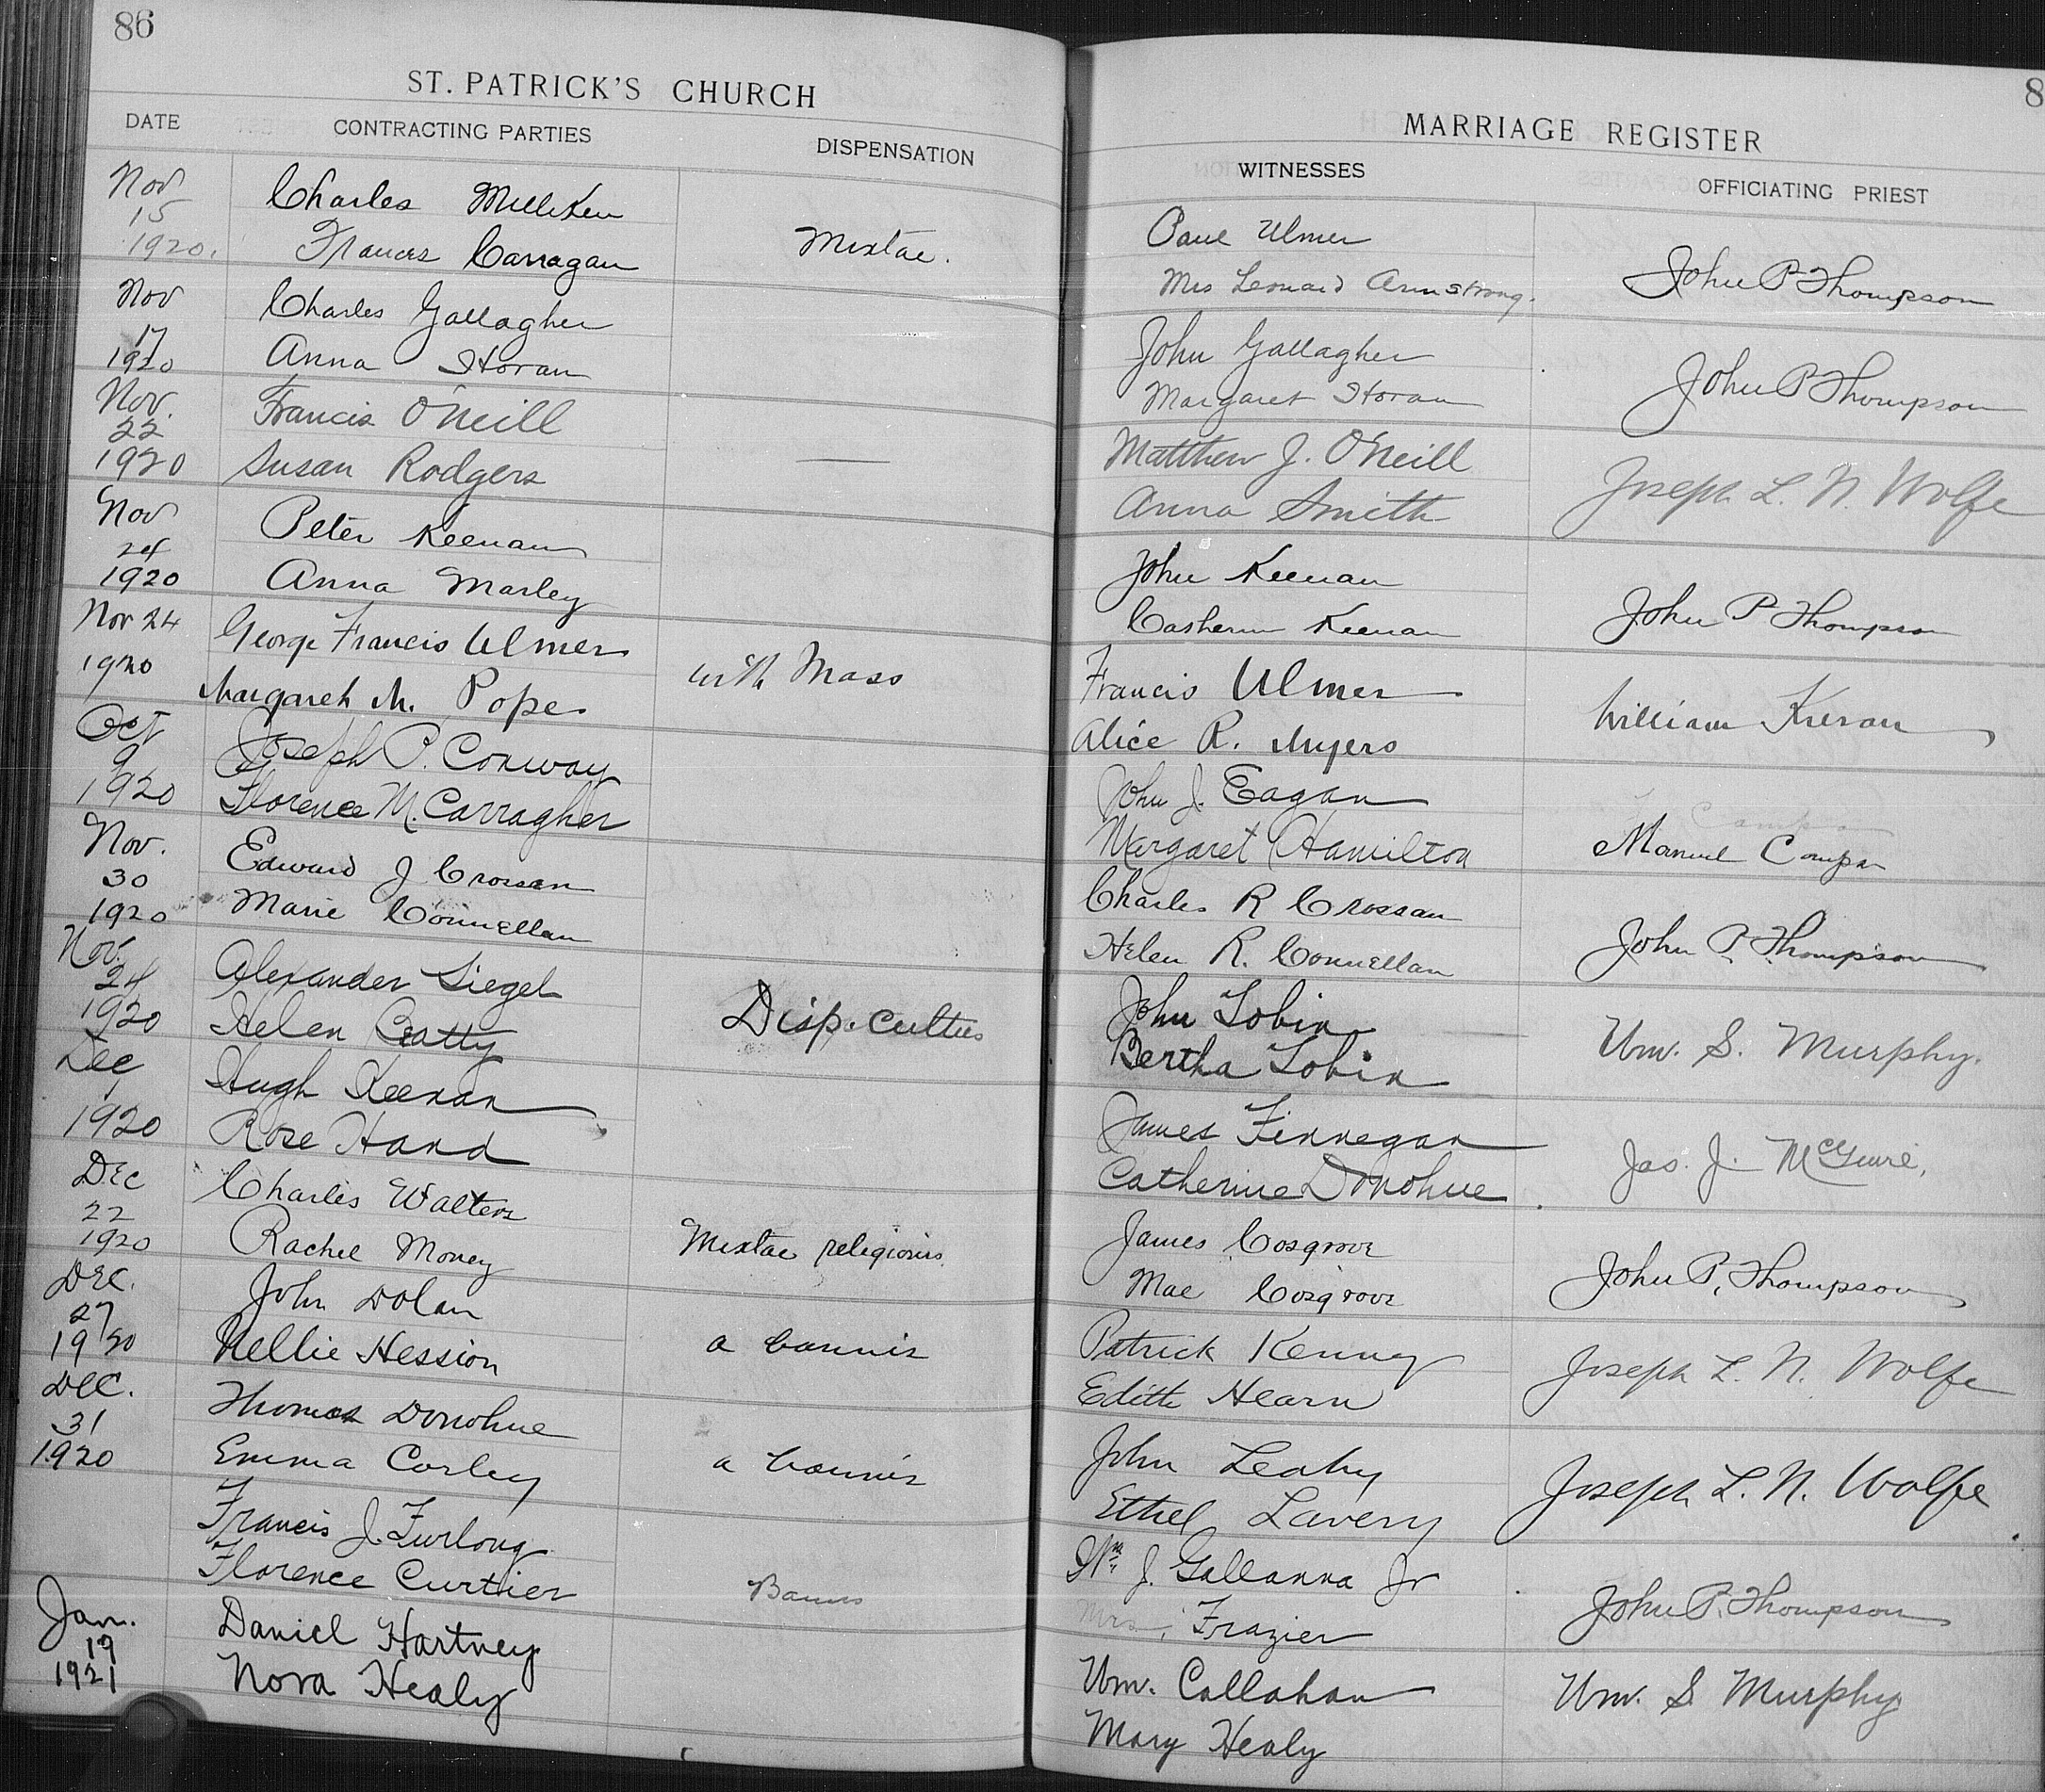 86
ST. PATRICK'S CHURCH
DATE CONTRACTING PARTIES DISPENSATION
Nov 15 1920.
Charles Milliken
Frances Carragan
Mixtae.
Nov 17 1920
Charles Gallagher
Anna Horan
Nov. 22 1920
Francis O'Neill
Susan Rodgers
—
Nov 24 1920
Peter Keenan
Anna Marley
Nov 24 1920
George Francis Ulmer
Margaret M. Pope
with Mass
Oct 9 1920
Joseph P. Conway
Florence M. Carragher
Nov. 30 1920
Edward J Crossan
Marie Connellan
Nov. 24 1920
Alexander Siegel
Helen Beatty
Disp. cultus
Dec 1 1920
Hugh Keenan
Rose Hand
Dec 22 1920
Charles Walters
Rachel Money
Mixtae religionis
Dec. 27 1920
John Dolan
Nellie Hession
a bannis
Dec. 31 1920
Thomas Donohue
Emma Corley
a bannis
Francis J. Furlong
Florence Curtier
Banns
Jan. 19 1921
Daniel Hartney
Nora Healy
8
MARRIAGE REGISTER
WITNESSES OFFICIATING PRIEST
Paul Ulmer
Mrs Leonard Armstrong.
John P Thompson
John Gallagher
Margaret Horan
John P Thompson
Matthew J. O'Neill
Anna Smith
Joseph L. N. Wolfe
John Keenan
Catherine Keenan
John P Thompson
Francis Ulmer
Alice R. Myers
William Kieran
John J. Eagan
Margaret Hamilton
Manuel
Charles R Crossan
Helen R. Connellan
John P. Thompson
John Tobin
Bertha Tobin
Wm. S. Murphy.
James Finnegan
Catherine Donohue
Jas. J. McGuire,
James Cosgrove
Mae Cosgrove
John P. Thompson
Patrick Kenny
Edith Hearn
Joseph L. N. Wolfe
John Leahy
Ethel Lavery
Joseph L. N. Wolfe
Wm. J. Gallanna Jr
Mrs. Frazier
John P. Thompson
Wm. Callahan
Mary Healy
Wm. S. Murphy